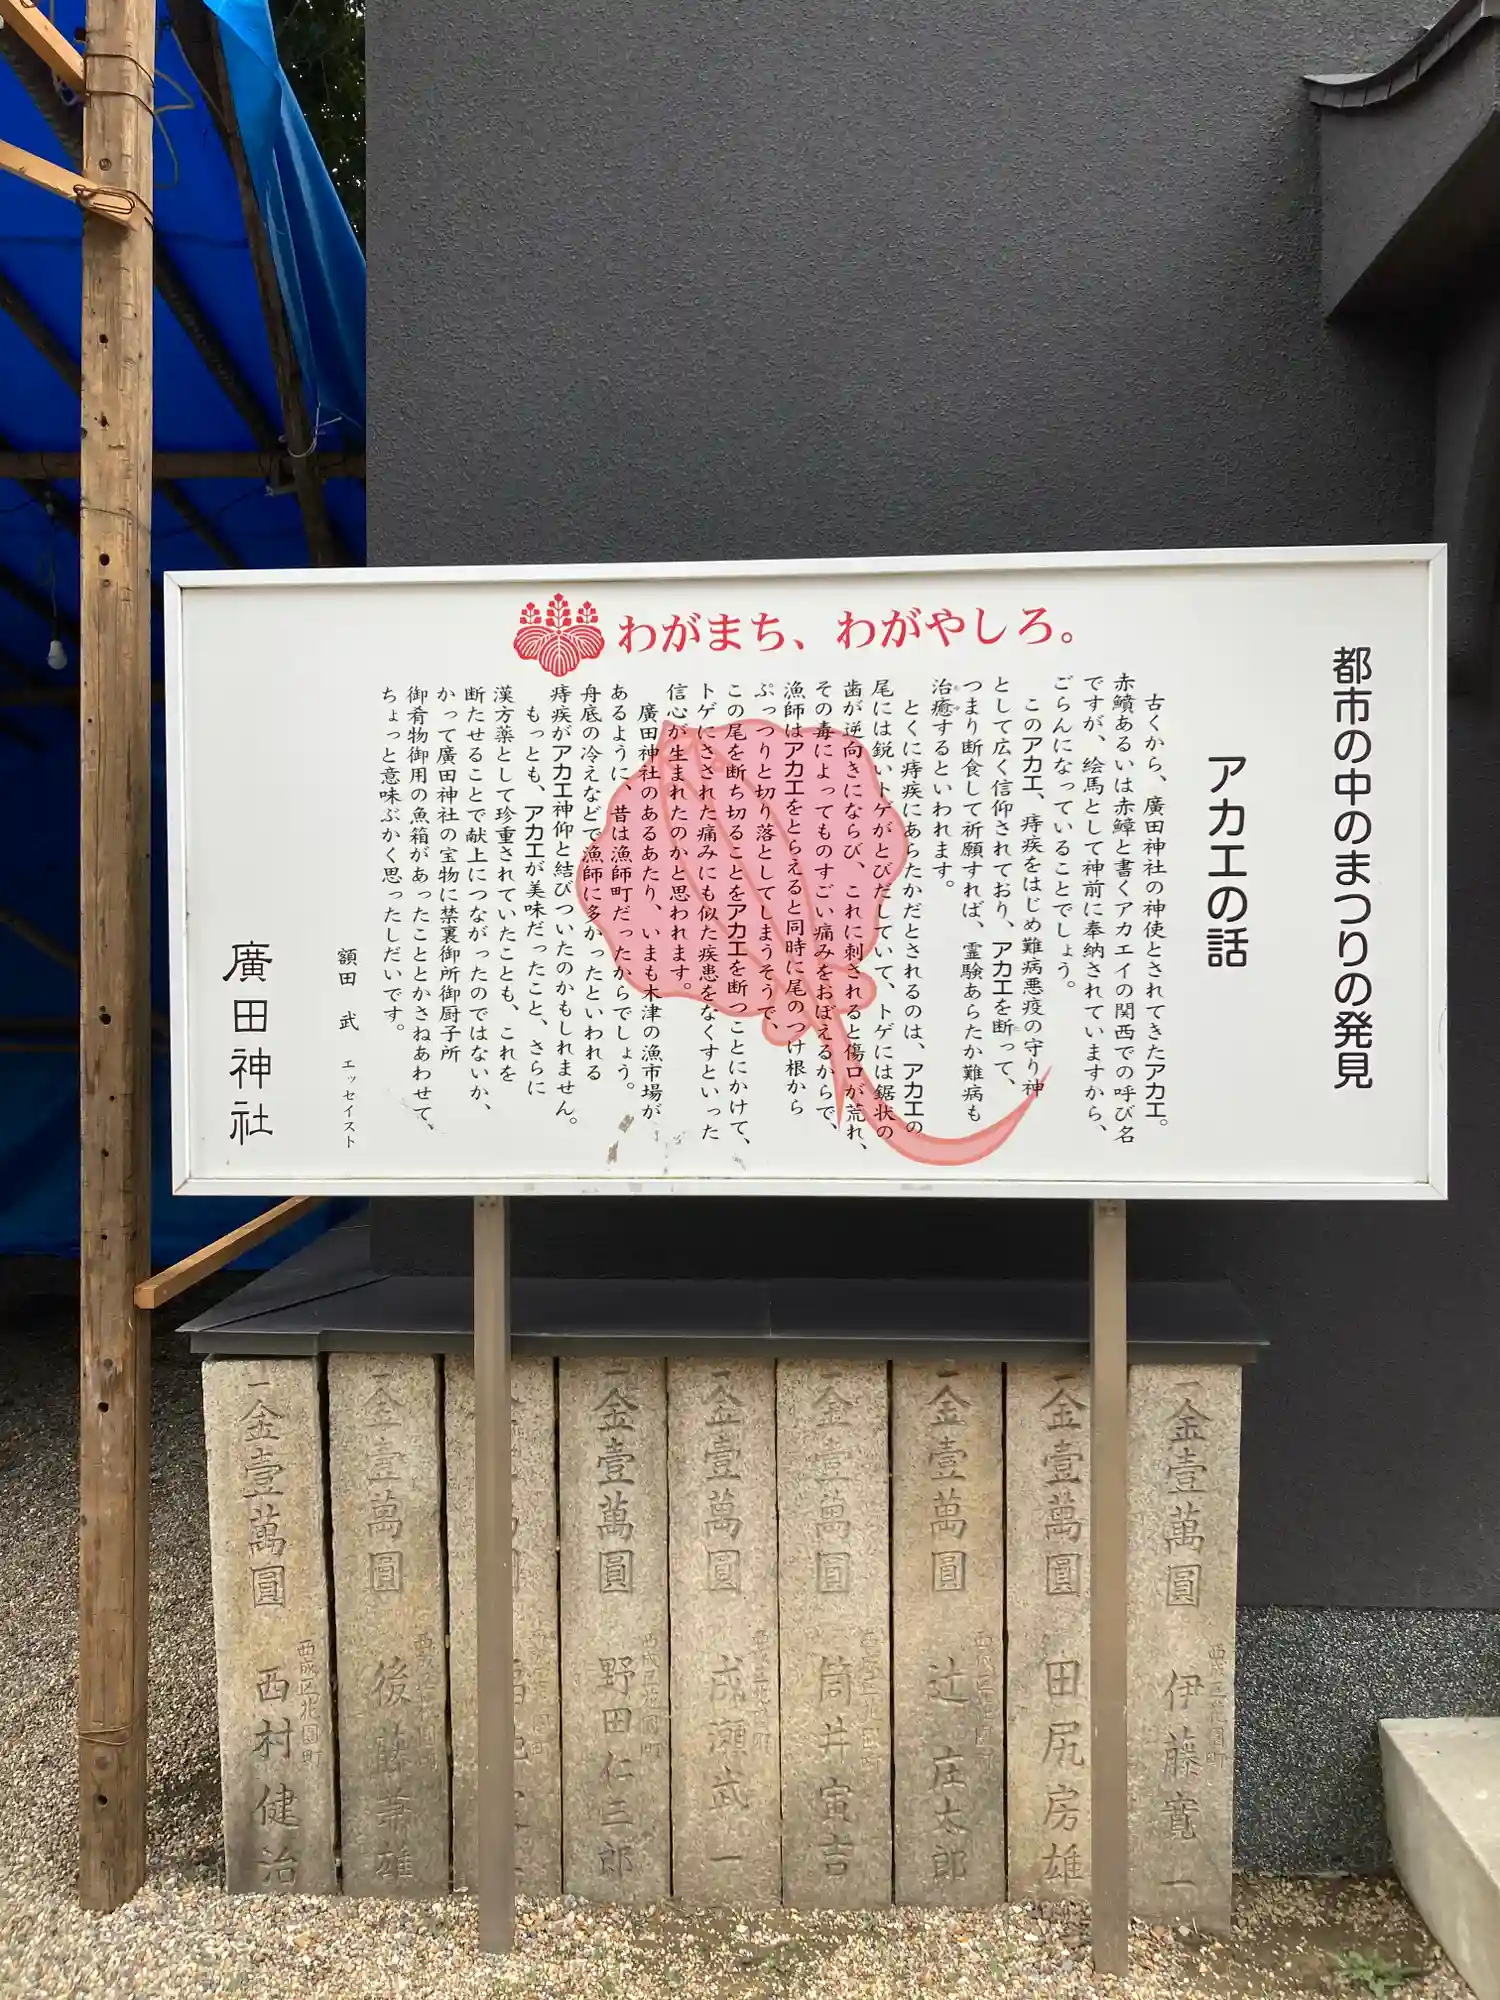 わがまち、わがやしろ。
都市の中のまつりの発見
アカエの話
古くから、廣田神社の神使とされてきたアカエ。
赤鱝あるいは赤鱆と書くアカエイの関西での呼び名
ですが、絵馬として神前に奉納されていますから、
ごらんになっていることでしょう。
このアカエ、痔疾をはじめ難病悪疫の守り神
として広く信仰されており、アカエを断って、
つまり断食して祈願すれば、霊験あらたか難病も
治癒するといわれます。
とくに痔疾にあらたかだとされるのは、アカエの
尾には鋭いトゲがとびだしていて、トゲには鋸状の
歯が逆向きにならび、これに刺されると傷口が荒れ、
その毒によってものすごい痛みをおぼえるからで、
漁師はアカエをとらえると同時に尾のつけ根から
ぷっつりと切り落としてしまうそうで、
この尾を断ち切ることをアカエを断つことにかけて、
トゲにさされた痛みにも似た疾患をなくすといった
信心が生まれたのかと思われます。
廣田神社のあるあたり、いまも木津の漁市場が
あるように、昔は漁師町だったからでしょう。
舟底の冷えなどで漁師に多かったといわれる
痔疾がアカエ神仰と結びついたのかもしれません。
もっとも、アカエが美味だったこと、さらに
漢方薬として珍重されていたことも、これを
断たせることで献上につながったのではないか、
かって廣田神社の宝物に禁裏御所御厨子所
御肴物御用の魚箱があったこととかさねあわせて、
ちょっと意味ぶかく思ったしだいです。
額田 武 エッセイスト
廣田神社
一金壹萬圓 伊藤寛一
一金壹萬圓 田尻房雄
一金壹萬圓 辻庄太郎
一金壹萬圓 筒井寅吉
一金壹萬圓 成瀬武一
一金壹萬圓 西成区花園町 野田仁三郎
一金壹萬圓 後藤兼雄
一金壹萬圓 西成区花園町 西村健治